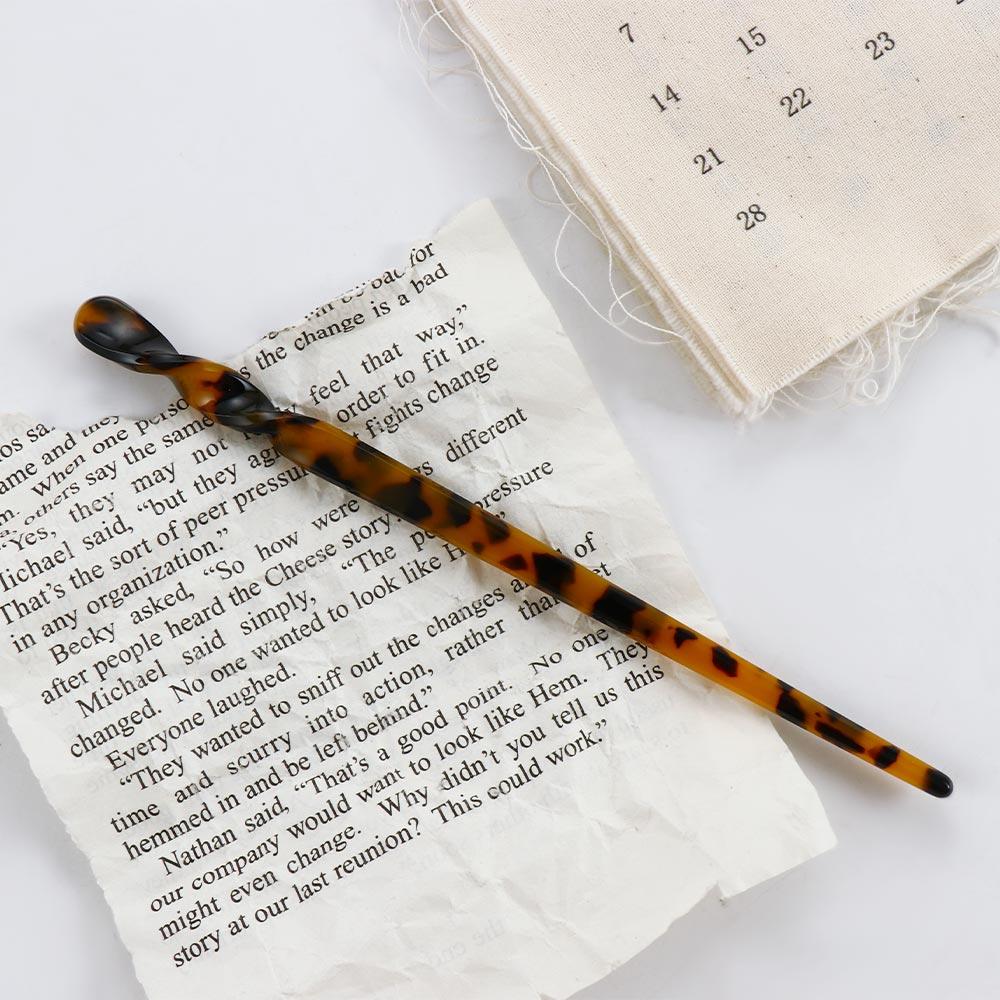 7 15 23
14 22
21
28
for
the change is a bad
feel that way,"
order to fit in.
When one fights change
others say the same different
"Yes, they may not
Michael said, "but they pressure
That's the sort of peer
in any organization."
Becky asked, "So how were
after people heard the Cheese story
Michael said simply, "The of
changed. No one wanted to look like
Everyone laughed.
"They wanted to sniff out the changes
time and scurry into action, rather
hemmed in and be left behind."
Nathan said, "That's a good point. No one
our company would want to look like Hem. They
might even change. Why didn't you tell us this
story at our last reunion? This could work."